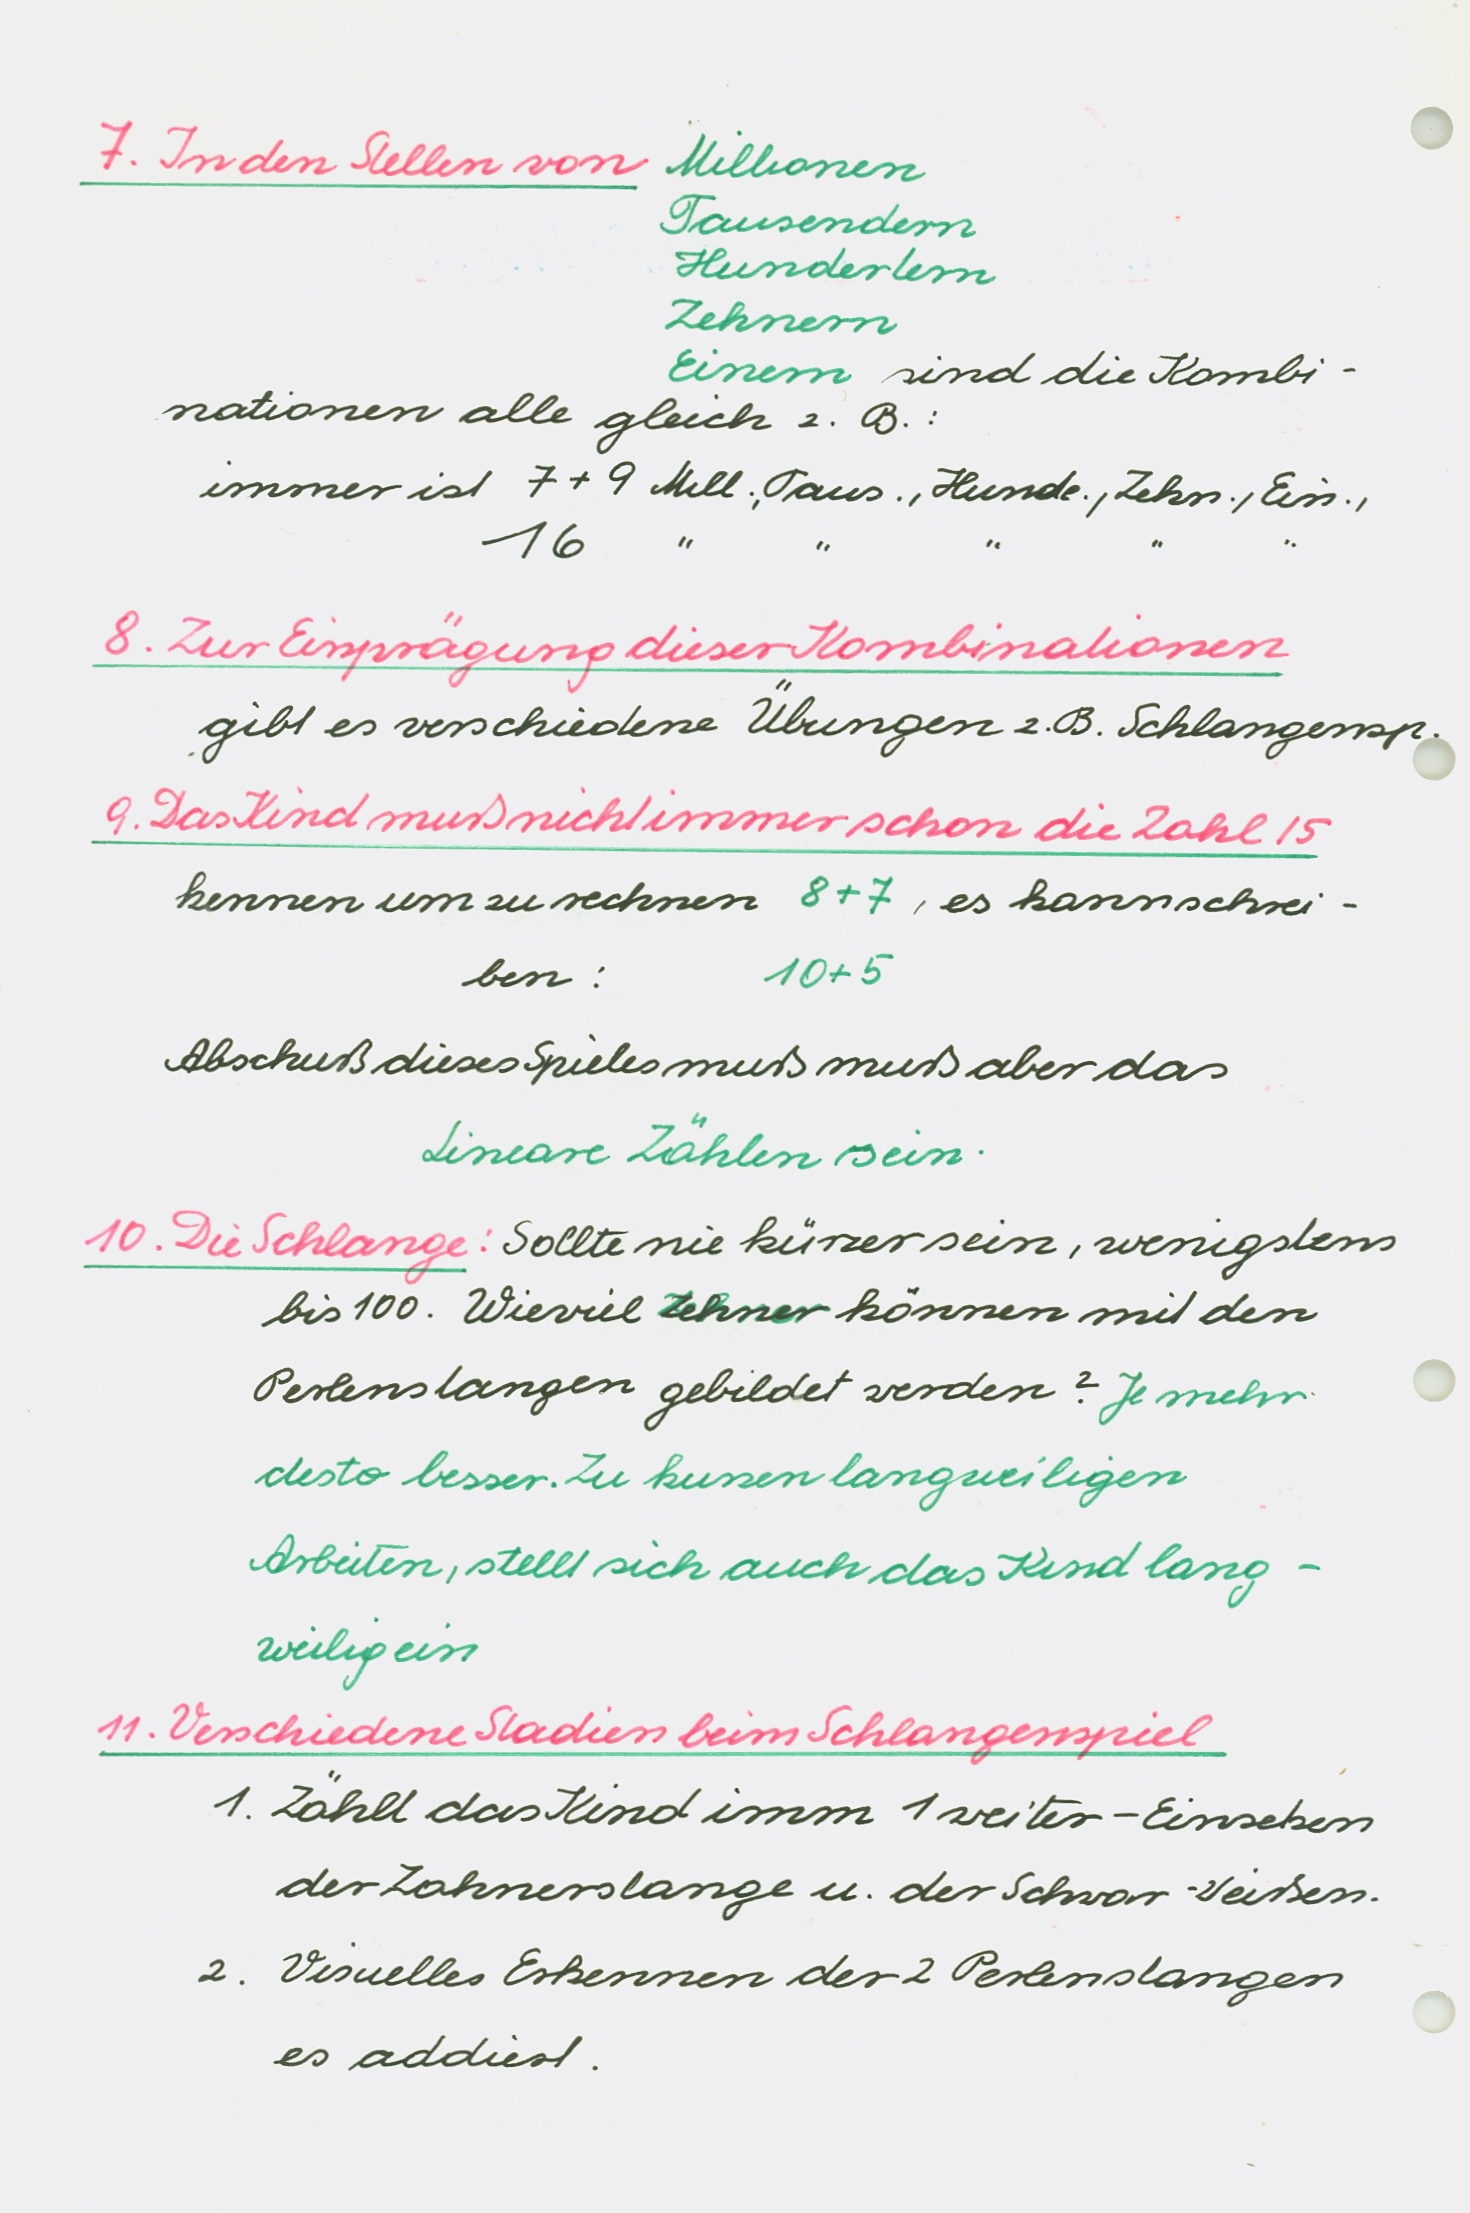 7. In den Stellen von Millionen
Tausendern
Hundertern
Zehnern
Einern sind die Kombi-
nationen alle gleich z. B.:
immer ist 7+9 Mill., Taus., Hunde., Zehn., Ein.,
16 " " " " "
8. Zur Einprägung dieser Kombinationen
gibt es verschiedene Übungen z.B. Schlangensp.
9. Das Kind muß nicht immer schon die Zahl 15
kennen um zu rechnen 8+7, es kann schrei-
ben: 10+5
Abschuß dieses Spieles muß muß aber das
Lineare Zählen sein.
10. Die Schlange: Sollte nie kürzer sein, wenigstens
bis 100. Wieviel Zehner können mit den
Perlenslangen gebildet werden? Je mehr
desto besser. Zu kurzen langweiligen
Arbeiten, stellt sich auch das Kind lang-
weilig ein
11. Verschiedene Stadien beim Schlangenspiel
1. Zählt das Kind imm 1 weiter - Einsetzen
der Zahnerslange u. der Schwar-Weißen.
2. Visuelles Erkennen der 2 Perlenslangen
es addiert.